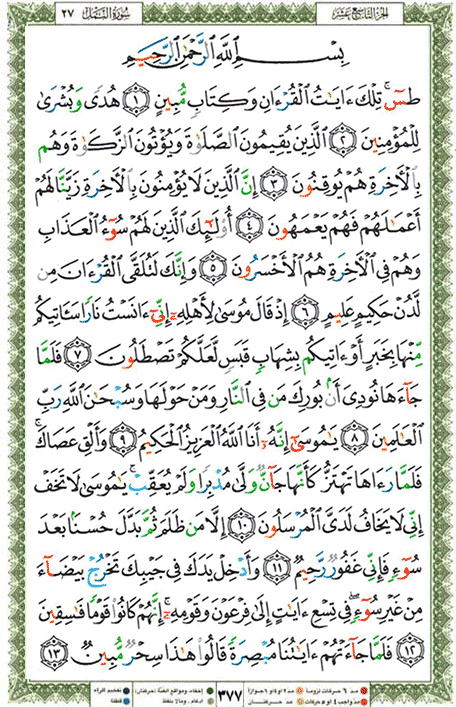 الجزء التاسع عشر
سُورَةُ النَّمْل ٢٧
بِسْمِ ٱللَّهِ ٱلرَّحْمَٰنِ ٱلرَّحِيمِ
طسٓ ۚ تِلْكَ ءَايَٰتُ ٱلْقُرْءَانِ وَكِتَابٍ مُّبِينٍ ١ هُدًى وَبُشْرَىٰ
لِلْمُؤْمِنِينَ ٢ ٱلَّذِينَ يُقِيمُونَ ٱلصَّلَوٰةَ وَيُؤْتُونَ ٱلزَّكَوٰةَ وَهُم
بِٱلْءَاخِرَةِ هُمْ يُوقِنُونَ ٣ إِنَّ ٱلَّذِينَ لَا يُؤْمِنُونَ بِٱلْءَاخِرَةِ زَيَّنَّا لَهُمْ
أَعْمَٰلَهُمْ فَهُمْ يَعْمَهُونَ ٤ أُو۟لَٰٓئِكَ ٱلَّذِينَ لَهُمْ سُوٓءُ ٱلْعَذَابِ
وَهُمْ فِى ٱلْءَاخِرَةِ هُمُ ٱلْأَخْسَرُونَ ٥ وَإِنَّكَ لَتُلَقَّى ٱلْقُرْءَانَ مِن
لَّدُنْ حَكِيمٍ عَلِيمٍ ٦ إِذْ قَالَ مُوسَىٰ لِأَهْلِهِۦٓ إِنِّىٓ ءَانَسْتُ نَارًا سَـَٔاتِيكُم
مِّنْهَا بِخَبَرٍ أَوْ ءَاتِيكُم بِشِهَابٍ قَبَسٍ لَّعَلَّكُمْ تَصْطَلُونَ ٧ فَلَمَّا
جَآءَهَا نُودِىَ أَنۢ بُورِكَ مَن فِى ٱلنَّارِ وَمَنْ حَوْلَهَا وَسُبْحَٰنَ ٱللَّهِ رَبِّ
ٱلْعَٰلَمِينَ ٨ يَٰمُوسَىٰٓ إِنَّهُۥٓ أَنَا ٱللَّهُ ٱلْعَزِيزُ ٱلْحَكِيمُ ٩ وَأَلْقِ عَصَاكَ ۚ
فَلَمَّا رَءَاهَا تَهْتَزُّ كَأَنَّهَا جَآنٌّ وَلَّىٰ مُدْبِرًا وَلَمْ يُعَقِّبْ ۚ يَٰمُوسَىٰ لَا تَخَفْ
إِنِّى لَا يَخَافُ لَدَىَّ ٱلْمُرْسَلُونَ ١٠ إِلَّا مَن ظَلَمَ ثُمَّ بَدَّلَ حُسْنًۢا بَعْدَ
سُوٓءٍ فَإِنِّى غَفُورٌ رَّحِيمٌ ١١ وَأَدْخِلْ يَدَكَ فِى جَيْبِكَ تَخْرُجْ بَيْضَآءَ
مِنْ غَيْرِ سُوٓءٍ ۖ فِى تِسْعِ ءَايَٰتٍ إِلَىٰ فِرْعَوْنَ وَقَوْمِهِۦٓ ۚ إِنَّهُمْ كَانُوا۟ قَوْمًا فَٰسِقِينَ
١٢ فَلَمَّا جَآءَتْهُمْ ءَايَٰتُنَا مُبْصِرَةً قَالُوا۟ هَٰذَا سِحْرٌ مُّبِينٌ ١٣
مد ٦ حركات لزوماً مد ٢ أو ٤ أو ٦ جوازاً
مد واجب ٤ أو ٥ حركات مد حركتان
٣٧٧
إخفاء، ومواقع الغنة (حركتان) تفخيم الراء
إدغام، وما لا يلفظ قلقلة